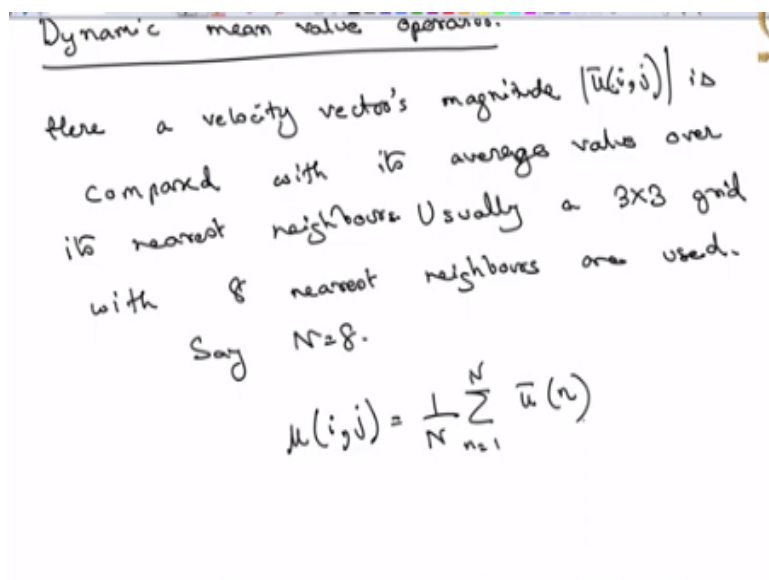 Dynamic mean value operator.
Here a velocity vector's magnitude |ū(i,j)| is
compared with its average value over
its nearest neighbours. Usually a 3×3 grid
with 8 nearest neighbours are used.
Say N=8.
μ(i,j) = 1/N Σ_{n=1}^{N} ū(n)